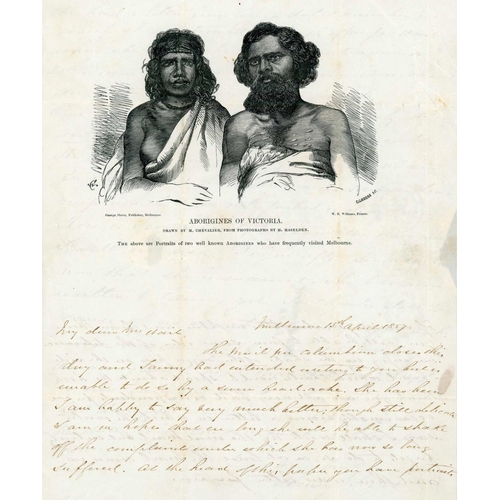 George Slater, Publisher, Melbourne.
W. H. Williams, Printer
ABORIGINES OF VICTORIA.
DRAWN BY M. CHEVALIER, FROM PHOTOGRAPHS BY H. HASELDEN.
The above are Portraits of two well known Aborigines who have frequently visited Melbourne.
Melbourne 15th April 1857.
My dear Mrs
The Mail per Columbian closes this
day and had intended writing to you but is
unable to do so by a severe head ache. She has been
I am happy to say very much better, though still delicate
I am in hopes that ere long she will be able to shake
off the complaint under which she has now so long
suffered. At the head of this paper you have portraits